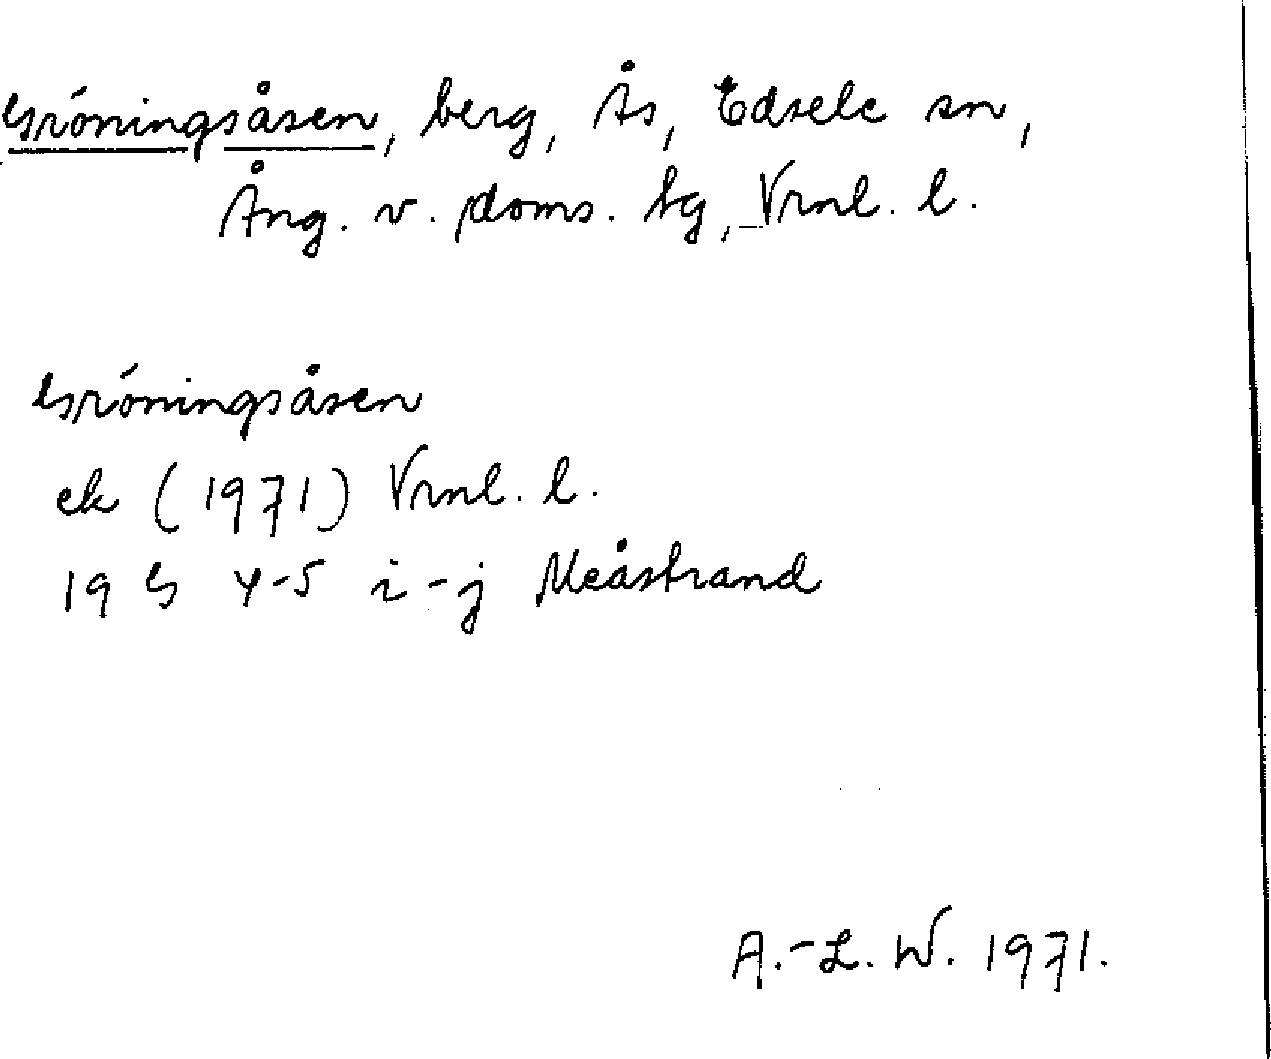 Gröningsåsen, berg, Ås, Edsele sn,
Ång. v. doms. tg, Vrnl. l.
Gröningsåsen
ek (1971) Vrnl. l.
19 G 4-5 i-j Meåstrand
A.-L. W. 1971.